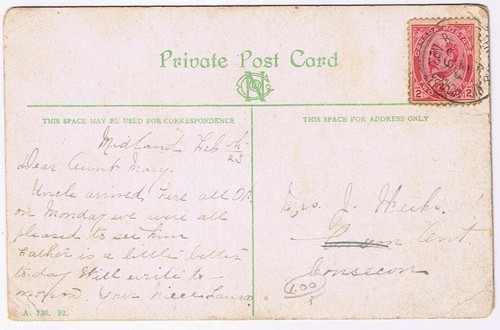 Private Post Card
THIS SPACE MAY BE USED FOR CORRESPONDENCE
Midland Feb 23
Dear Aunt Mary.
Uncle arrived here all OK
on Monday we were all
pleased to see him
Father is a little better
today Will write to
morrow. Your Niece
A. 736. 92.
THIS SPACE FOR ADDRESS ONLY
Mrs. J. Weeks.
Ont
Consecon
1.00
CANADA POSTAGE
2 2